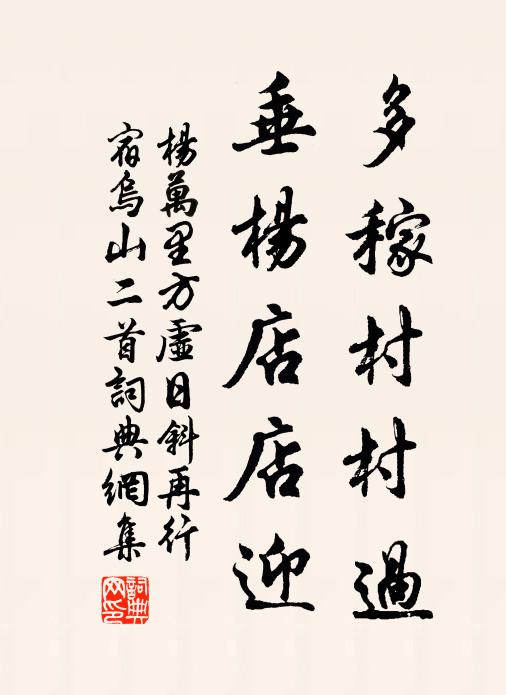 多稼村村過
垂楊店店迎
楊萬里方虛日斜再行
宿烏山二首詞典網集
詞典網印